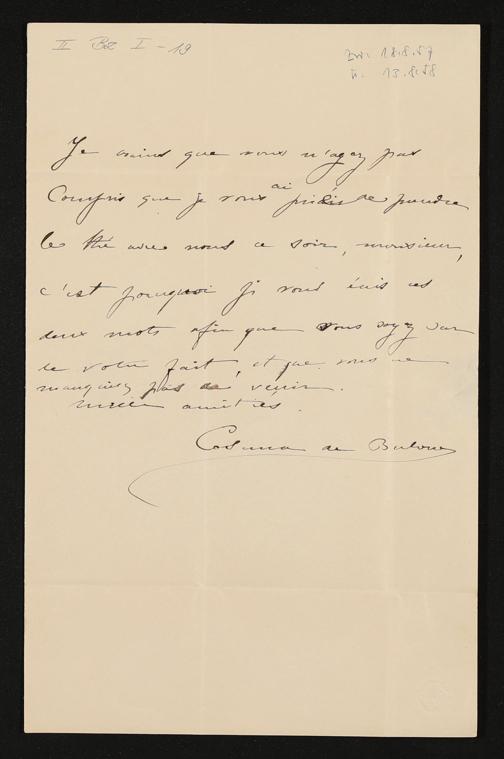 II Bz I - 19
zw. 18.8.57
u. 13.8.58
Je crains que vous n'ayez pas
Compris que je vous ai priés de prendre
le thé avec nous ce soir, monsieur,
c'est pourquoi je vous écris ces
deux mots afin que vous soyez sur
de votre fait, et que vous ne
manquiez pas de venir.
mille amitiés.
Cosima de Bulow